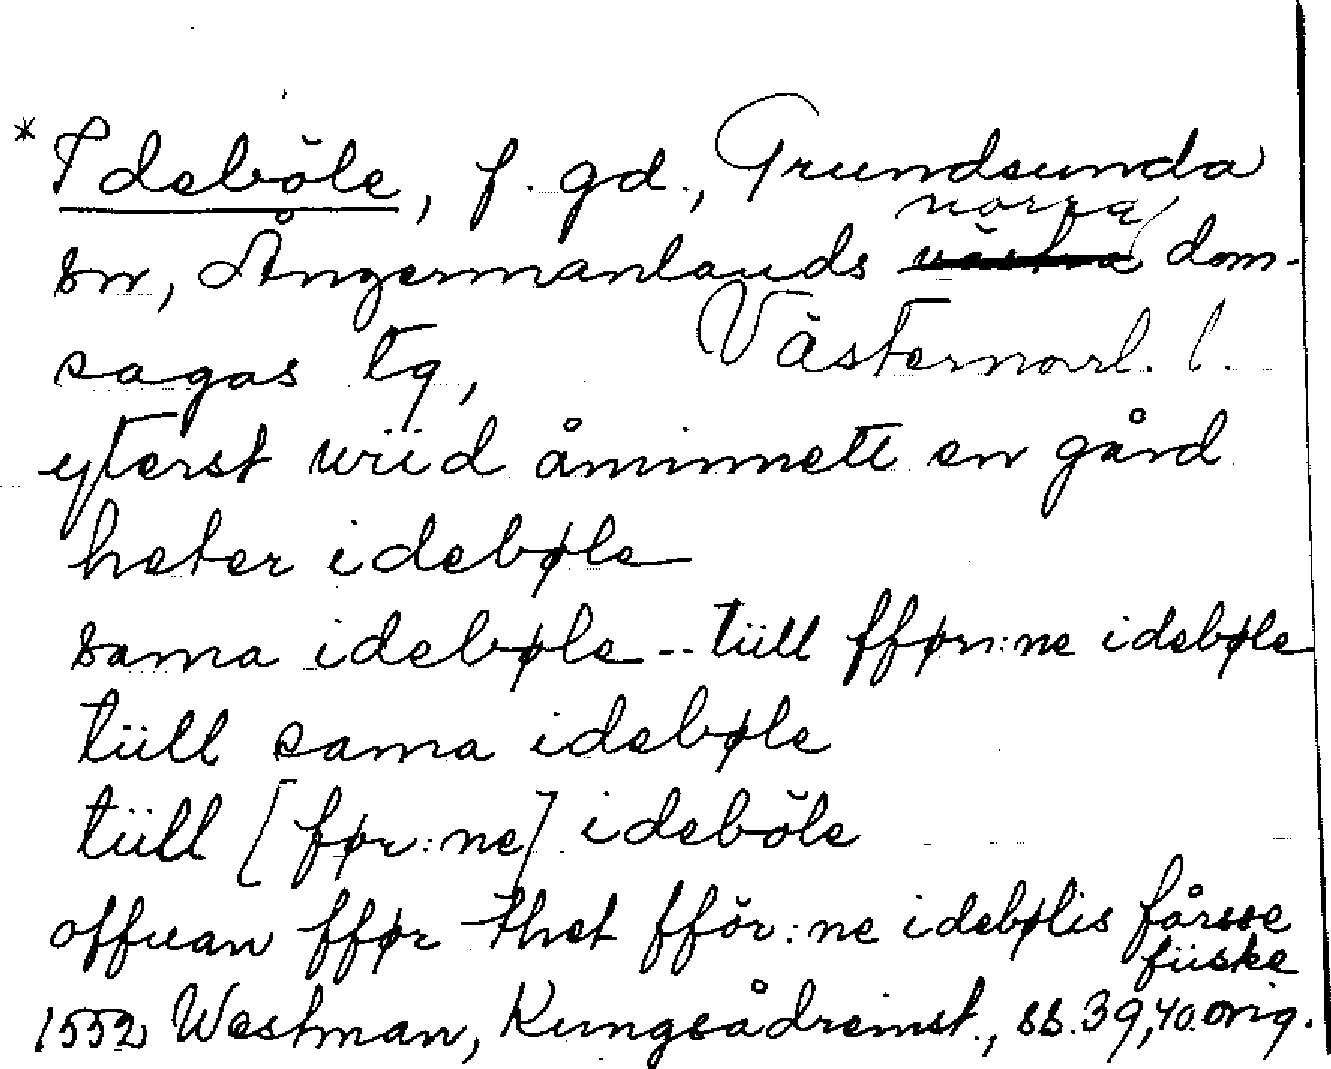 * Ideböle, f. gd., Grundsunda
norra
sn, Ångermanlands västra dom-
sagas tg, Västernorrl. l.
yterst wiid åminnett en gård
heter idebøle
sama idebøle -- tiill fførn:ne idebøle
tiill sama idebøle
tiill [før:ne] ideböle
offuan fför thet fför:ne idebølis fårsse
fiiske
1552 Westman, Kungsådreinst., ss. 39, 40. orig.